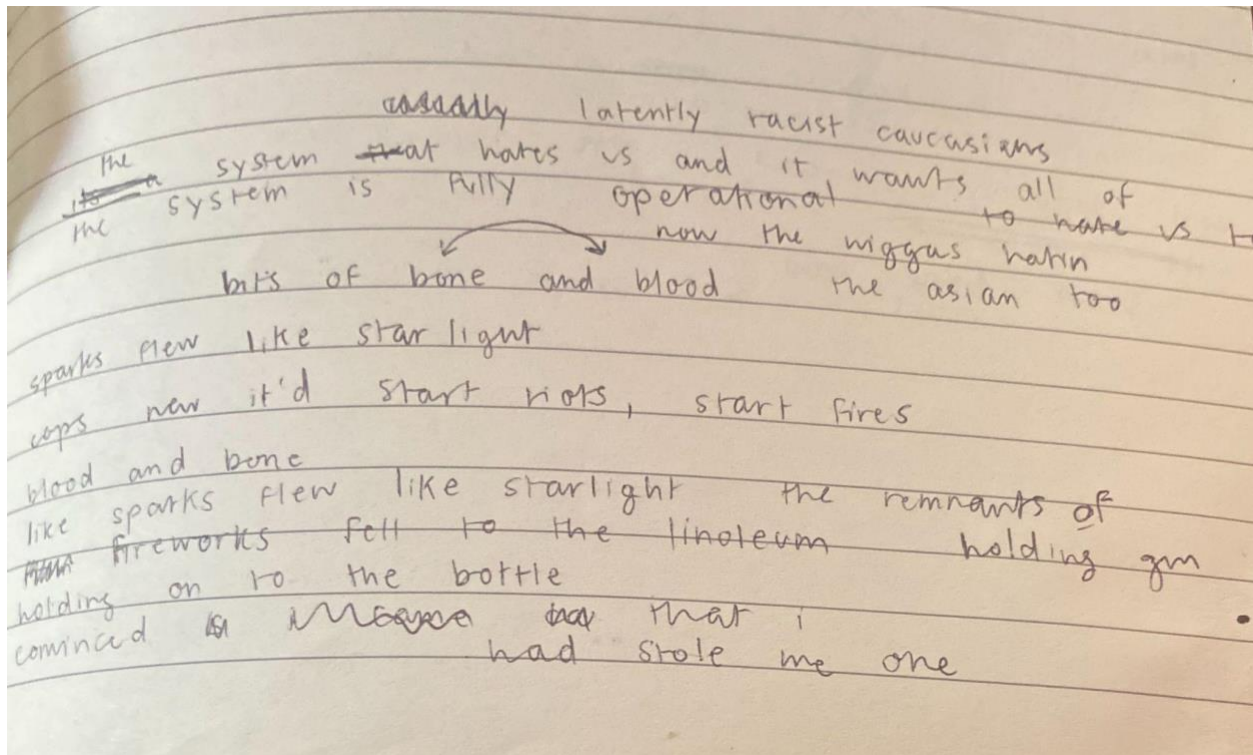 casually latently racist caucasians
the system that hates us and it wants all of
the system is fully operational to hate us t
now the niggas hatin
bits of bone and blood the asian too
sparks flew like star light
cops new it'd start riots, start fires
blood and bone
like sparks flew like starlight the remnants of
fireworks fell to the linoleum holding gun
holding on to the bottle
convinced that i
had stole me one